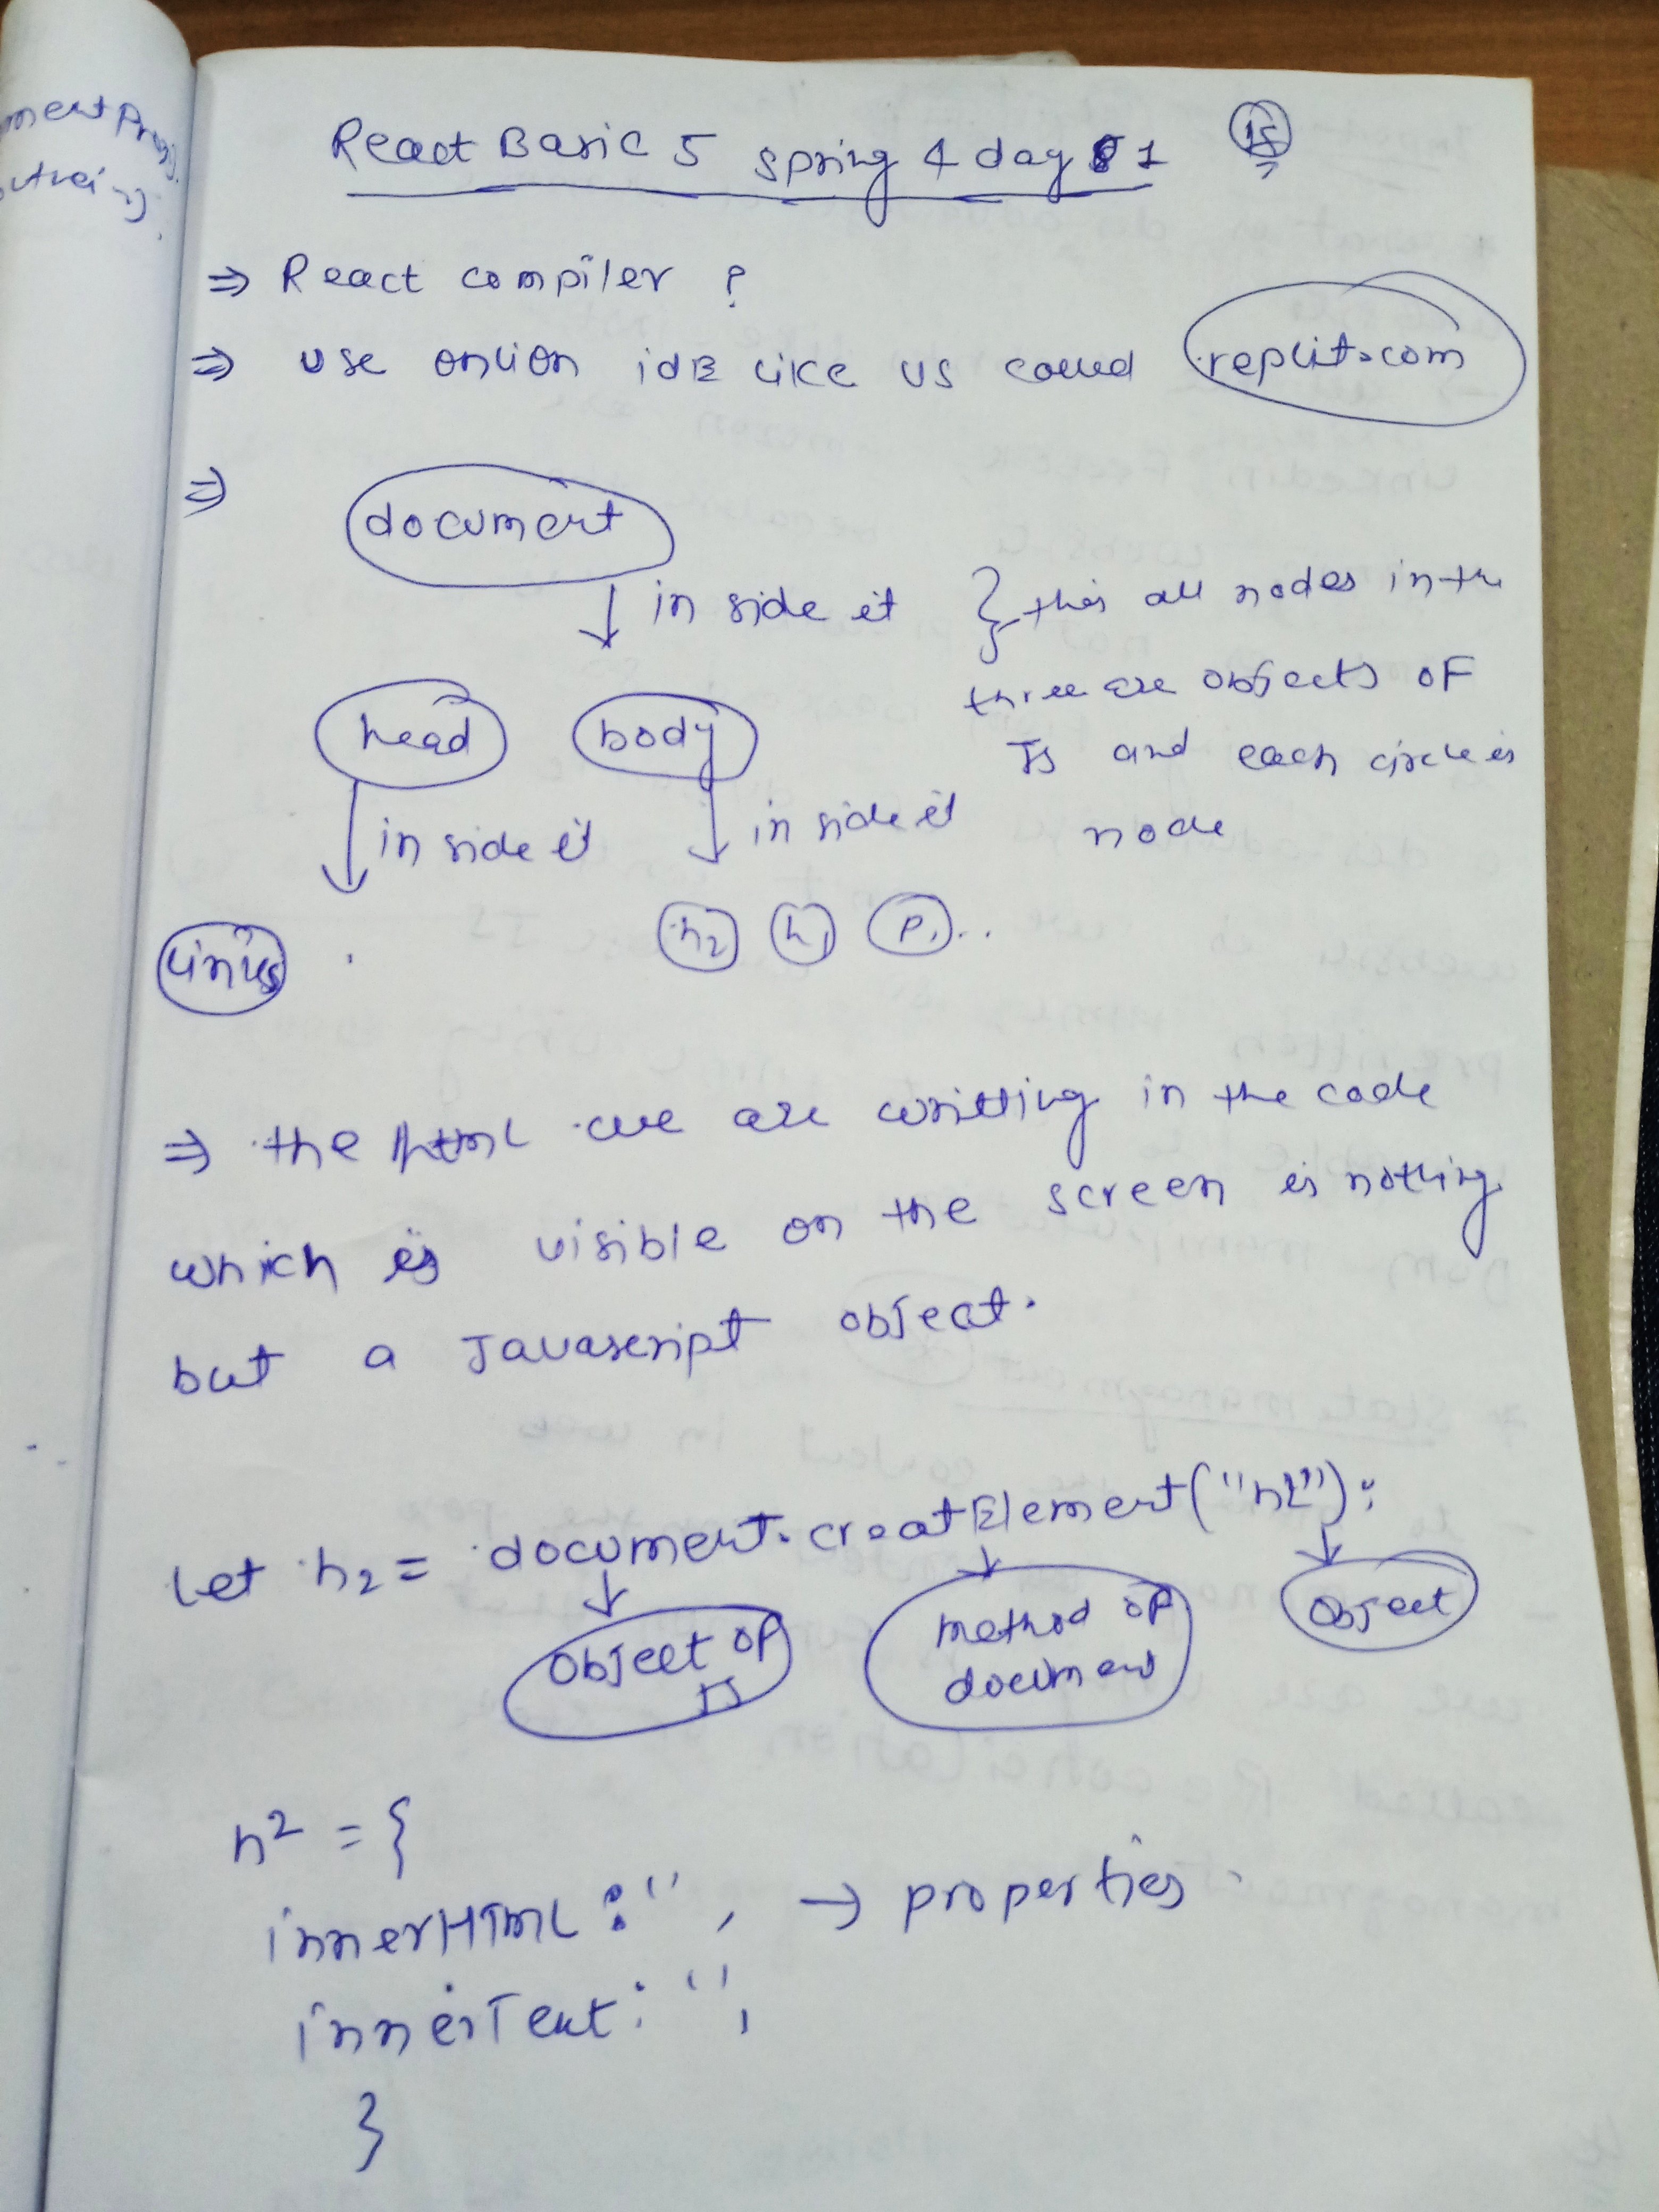 React Basic 5 spring 4 day 1
15
⇒ React compiler ?
⇒ use onlion idE like us called replit.com
⇒ document
in side it } this all nodes in the
three are objects of
head body
JS and each circle is
in side it in side it
node
links h2 h1 p...
⇒ the html we are writting in the code
which is visible on the screen is nothing
but a Javascript object.
let h2 = document.creatElement("h2");
object of JS
method of document
object
h2 = {
innerHTML : '' , → properties
innerText : '' ,
}